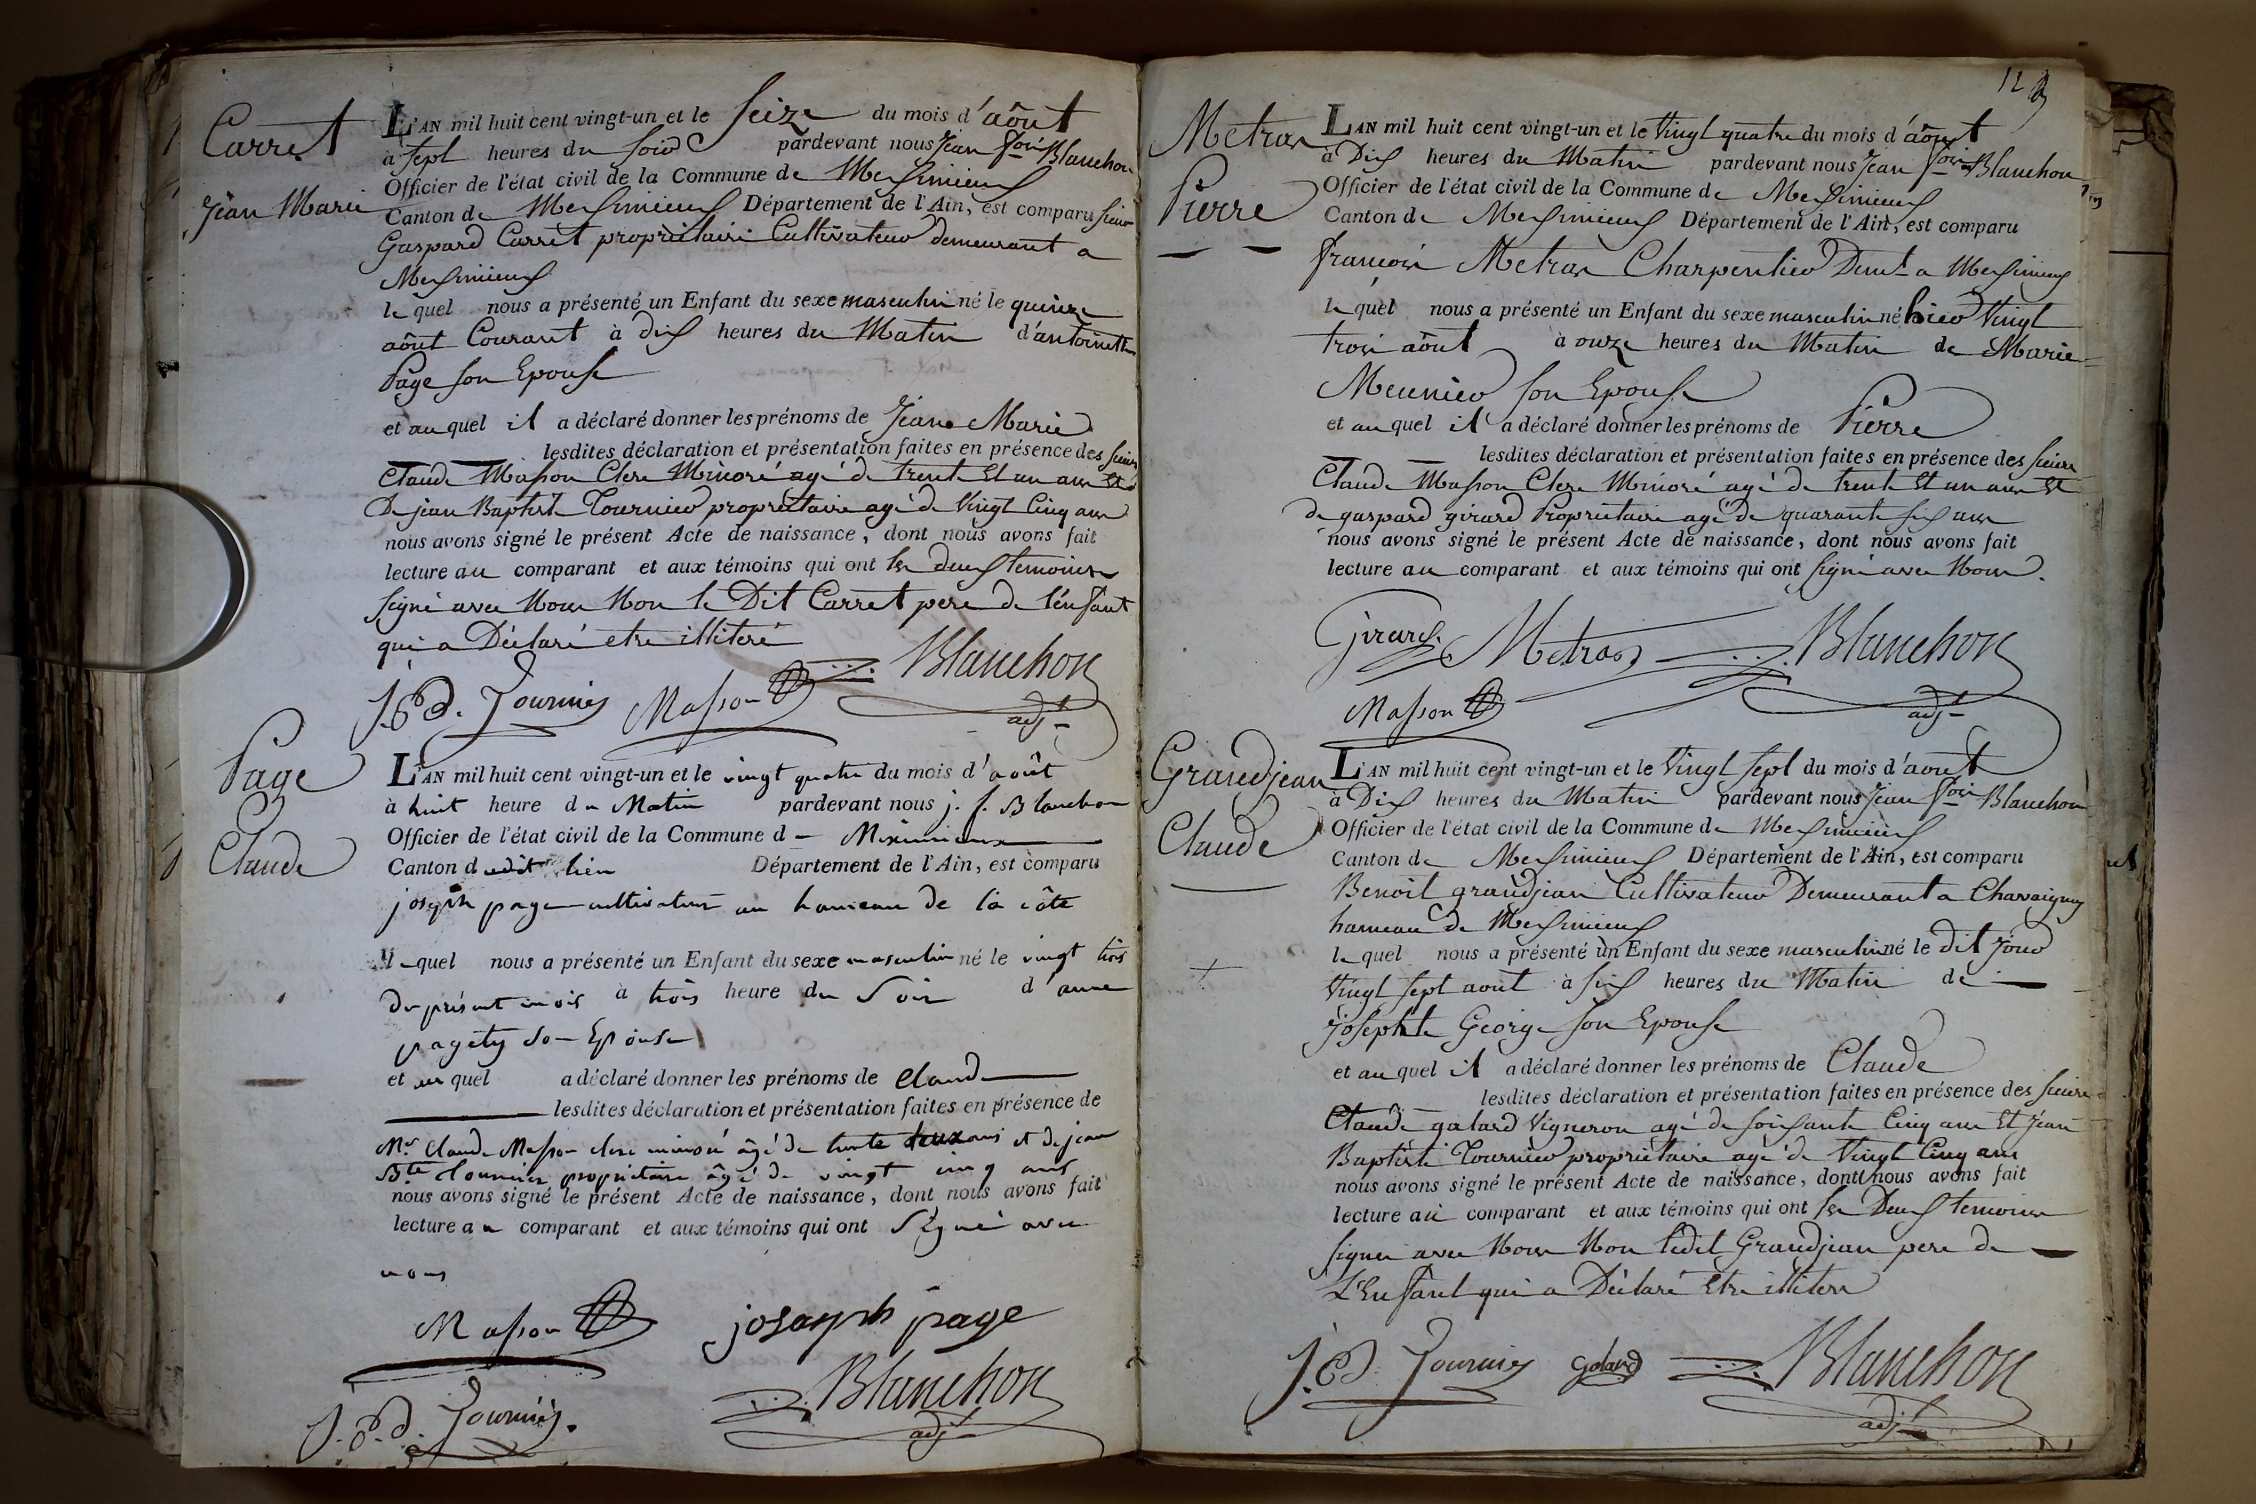 Carret
Jean Marie
L'AN mil huit cent vingt-un et le Seize du mois d'aôut
à Sept heures du Soir pardevant nous Jean fois Blanchon
Officier de l'état civil de la Commune de Meximieux
Canton de Meximieux Département de l'Ain, est comparu Sieur
Gaspard Carret propriétaire Cultivateur demeurant a
Meximieux
le quel nous a présenté un Enfant du sexe masculin né le quinze
aôut Courant à dix heures du Matin d'antoinette
Page son Epouse
et au quel il a déclaré donner les prénoms de Jean Marie
lesdites déclaration et présentation faites en présence des Sieurs
Claude Masson Clerc Minoré agé de trente et un ans et
De jean Baptiste Tournier propriétaire agé de Vingt Cinq ans
nous avons signé le présent Acte de naissance, dont nous avons fait
lecture au comparant et aux témoins qui ont les deux temoins
signé avec Nous Non le Dit Carret pere de l'enfant
qui a Déclaré etre illiteré
J. B. Tournier Masson Blanchon
adjt
Page
Claude
L'AN mil huit cent vingt-un et le vingt quatre du mois d'août
à huit heure du Matin pardevant nous j. f. Blanchon
Officier de l'état civil de la Commune d Miximieux
Canton dudit lieu Département de l'Ain, est comparu
joseph page cultivateur au hameau de la côte
lequel nous a présenté un Enfant du sexe masculin né le vingt trois
du présent mois à trois heure du Soir d'anne
pagety son Epouse
et au quel a déclaré donner les prénoms de Claude
lesdites déclaration et présentation faites en présence de
Mr Claude Masson clerc minoré âgé de trente deux ans et de jean
Bte Tournier propriétaire âgé de vingt cinq ans
nous avons signé le présent Acte de naissance, dont nous avons fait
lecture au comparant et aux témoins qui ont Signé avec
nous
Masson joseph page
J. B. Tournier. Blanchon
adjt
12
Metras
Pierre
L'AN mil huit cent vingt-un et le Vingt quatre du mois d'août
à Dix heures du Matin pardevant nous Jean fois Blanchon
Officier de l'état civil de la Commune de Meximieux
Canton de Meximieux Département de l'Ain, est comparu
françois Metras Charpentier Demt a Meximieux
le quel nous a présenté un Enfant du sexe masculin né hier Vingt
trois aôut à onze heures du Matin de Marie
Meunier son Epouse
et au quel il a déclaré donner les prénoms de Pierre
lesdites déclaration et présentation faites en présence des Sieurs
Claude Masson Clerc Minoré agé de trente et un ans et
de gaspard girard Propriétaire agé de quarante six ans
nous avons signé le présent Acte de naissance, dont nous avons fait
lecture au comparant et aux témoins qui ont signé avec Nous.
Girard Metras Blanchon
Masson adjt
Grandjean
Claude
L'AN mil huit cent vingt-un et le Vingt sept du mois d'aout
à Dix heures du Matin pardevant nous Jean fois Blanchon
Officier de l'état civil de la Commune de Meximieux
Canton de Meximieux Département de l'Ain, est comparu
Benoit grandjean Cultivateur Demeurant a Chavaigny
hameau de Meximieux
le quel nous a présenté un Enfant du sexe masculin né le dit Jour
Vingt sept aout à six heures du Matin de
Josephte George son Epouse
et au quel il a déclaré donner les prénoms de Claude
lesdites déclaration et présentation faites en présence des Sieurs
Claude galard Vigneron agé de soixante Cinq ans Et Jean
Baptiste Tournier propriétaire agé de Vingt Cinq ans
nous avons signé le présent Acte de naissance, dont nous avons fait
lecture au comparant et aux témoins qui ont les Deux temoins
signer avec Nous Non ledit Grandjean pere de
L'Enfant qui a Déclaré Etre illiteré
J. B. Tournier Galard Blanchon
adjt